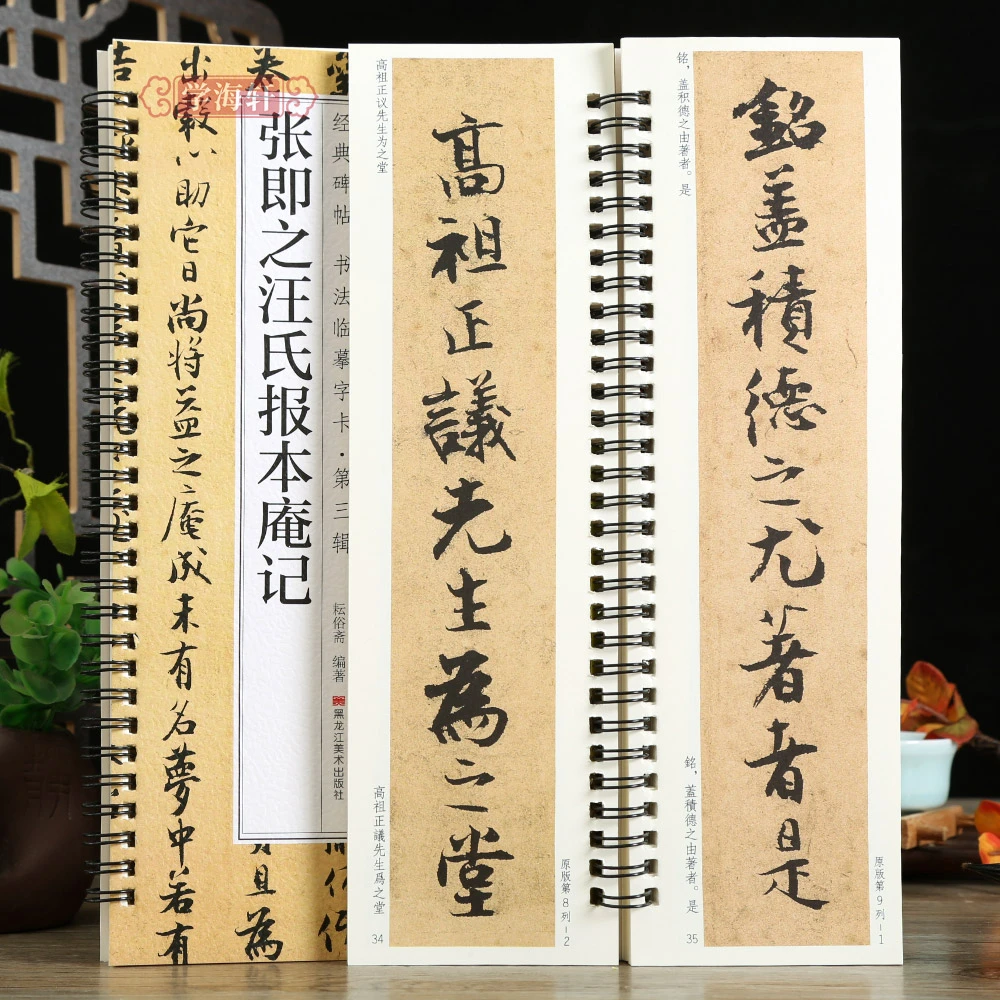 学海轩
出穀以助它日尚将益之庵成未有名夢中若有
且為
张即之汪氏报本庵记
经典碑帖 书法临摹字卡·第三辑
耘俗斋 编著
黑龙江美术出版社
高祖正议先生为之堂
高祖正議先生為之堂
高祖正議先生爲之堂
34
原版第8列-2
铭，盖积德之由著者。是
銘盖積德之尤著者是
銘，蓋積德之由著者。是
35
原版第9列-1